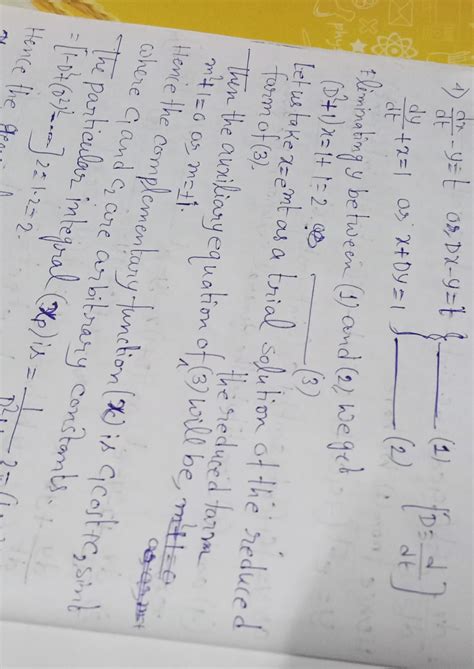 1) dx/dt - y = t or Dx - y = t } ——— (1) [D ≡ d/dt]
dy/dt + x = 1 or x + Dy = 1 } ——— (2)
Eliminating y between (1) and (2), we get
(D²+1)x = 1+1 = 2 ——— (3)
Let us take x = e^mt as a trial solution of the reduced
form of (3).
Then the auxiliary equation of the reduced form (3) will be, m²+1=0
m²+1=0 or m=±i.
Hence the complementary function (x) is c₁cost+c₂sint
where c₁ and c₂ are arbitrary constants.
The particular integral (xp) is = 1/D²+1 2 = (1+
= [1-D²+(D²)²-....] 2 = 1·2 = 2.
Hence the general